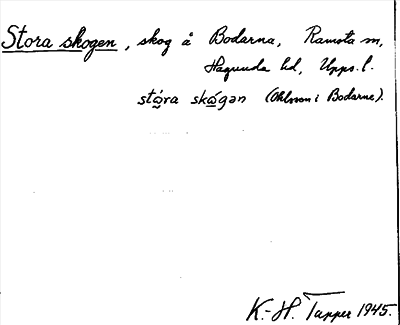 Stora skogen, skog å Bodarna, Ramsta sn,
Hagunda hd, Upps. l.
stóra skógən (Ohlsson i Bodarne).
K.-H. Tapper 1945.